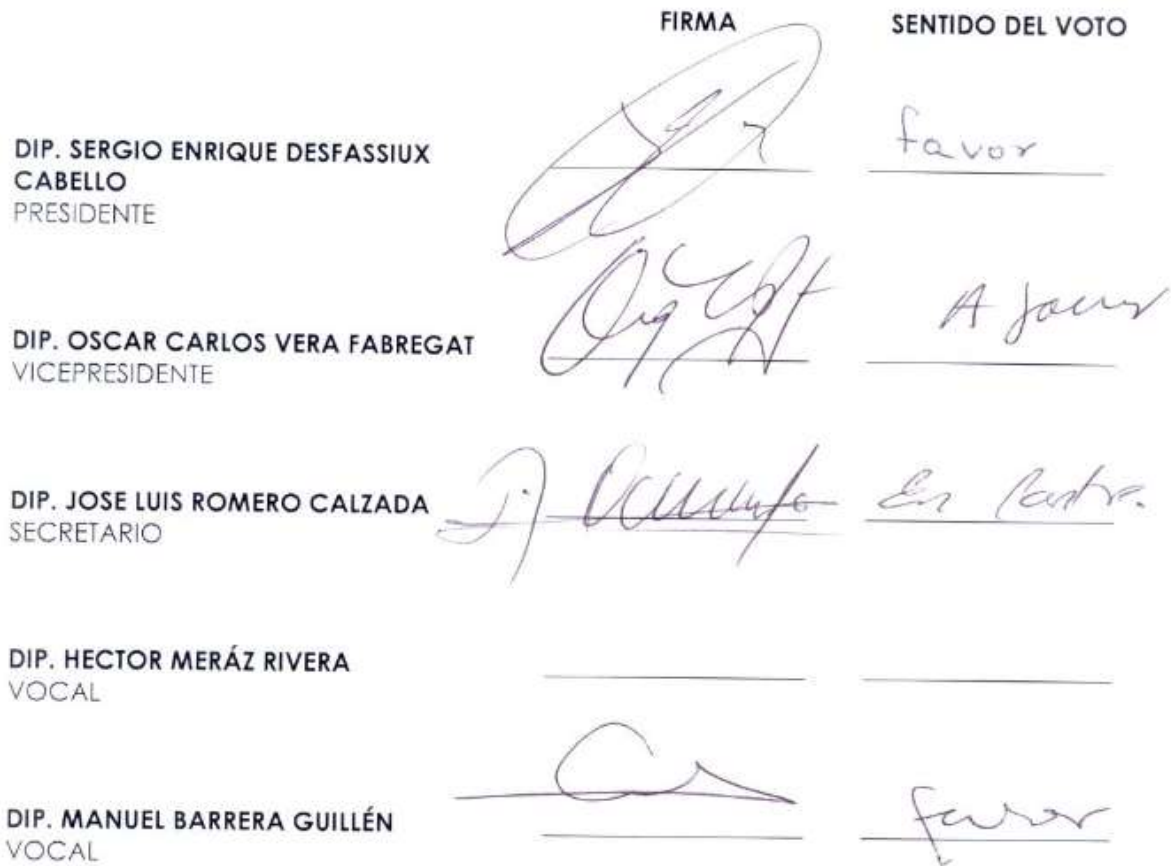 FIRMA SENTIDO DEL VOTO
DIP. SERGIO ENRIQUE DESFASSIUX favor
CABELLO
PRESIDENTE
DIP. OSCAR CARLOS VERA FABREGAT A favor
VICEPRESIDENTE
DIP. JOSE LUIS ROMERO CALZADA En
SECRETARIO
DIP. HECTOR MERÁZ RIVERA
VOCAL
DIP. MANUEL BARRERA GUILLÉN favor
VOCAL